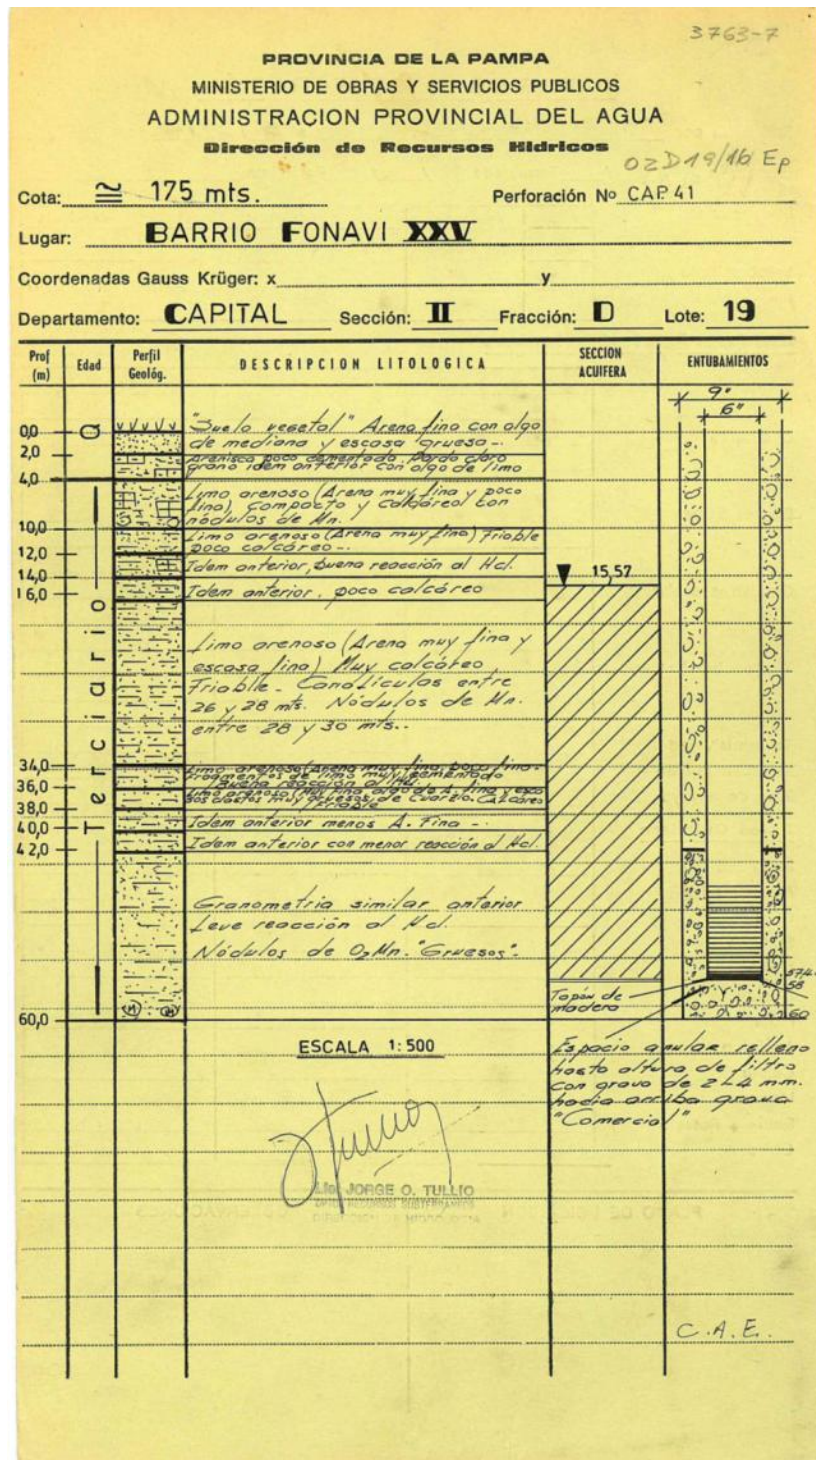 3763-7
PROVINCIA DE LA PAMPA
MINISTERIO DE OBRAS Y SERVICIOS PUBLICOS
ADMINISTRACION PROVINCIAL DEL AGUA
Dirección de Recursos Hídricos
02D19/16 Ep
Cota: ≅ 175 mts. Perforación Nº CAP. 41
Lugar: BARRIO FONAVI XXV
Coordenadas Gauss Krüger: x y
Departamento: CAPITAL Sección: II Fracción: D Lote: 19
Prof (m) Edad Perfil Geológ. DESCRIPCION LITOLOGICA SECCION ACUIFERA ENTUBAMIENTOS
9"
6"
0,0 Q "Suelo vegetal" Arena fina con algo
de mediana y escasa gruesa-.
2,0 Arenisca poco cementada, Pardo claro
grano idem anterior con algo de limo
4,0 Limo arenoso (Arena muy fina y poco
fina), Compacto y Calcáreo con
nódulos de Mn.
10,0 Limo arenoso (Arena muy fina) Friable
poco calcáreo-.
12,0 Idem anterior, buena reacción al Hcl.
14,0 Idem anterior. poco calcáreo
16,0
15,57
Terciario
Limo arenoso (Arena muy fina y
escasa fina) Muy calcáreo
Friable - Canalículos entre
26 y 28 mts. Nódulos de Mn.
entre 28 y 30 mts..
34,0 Limo arenoso (Arena muy fina, poco fina-
Fragmentos de limo muy cementado
Buena reacción al
36,0 Limo arenoso (muy fina, algo de A. fina y
clastos muy gruesos de Cuarzo. Calcáreo
Friable
38,0 Idem anterior menos A. Fina -.
40,0 Idem anterior con menor reacción al Hcl.
42,0
Granometría similar anterior
Leve reacción al Hcl.
Nódulos de O2Mn. "Gruesos".
58
60
Tapón de
madera
60,0
ESCALA 1:500
Espacio anular relleno
hasta altura de filtro
con grava de 2-4 mm.
hacia arriba grava
"Comercial"
Lic. JORGE O. TULLIO
C.A.E.